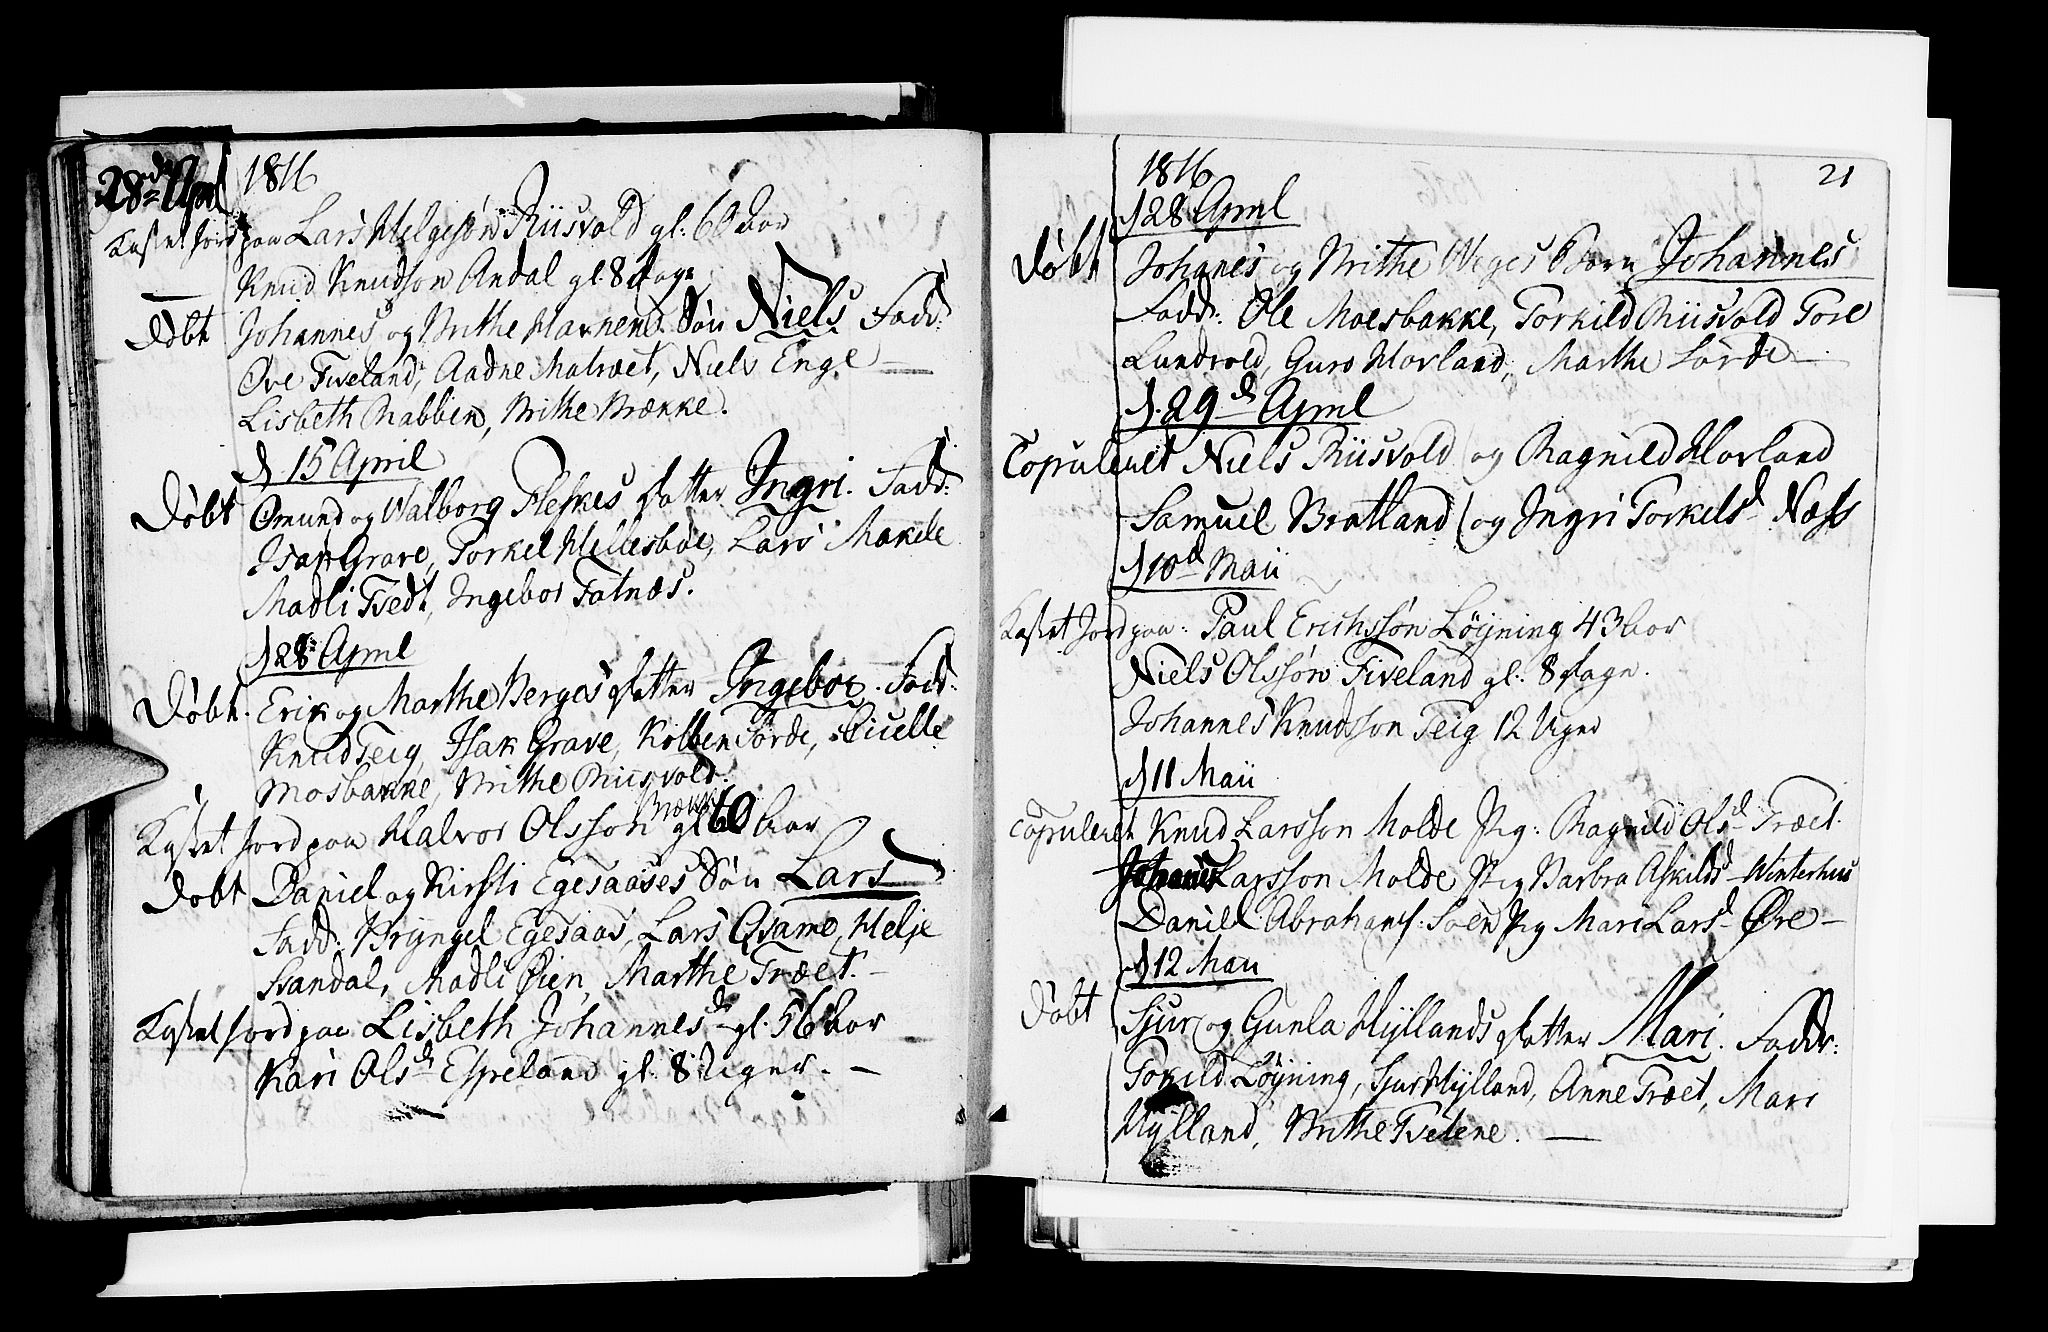 28de April 1816
Kastet Jord paa Lars Helgesøn Riisvold gl: 60 Aar
Knud Knudson Andal gl. 8 Dage
Døbt Johannes og Brithe Havnens Søn Niels Fadd:
Ove Fiveland, Aadne Matræt, Niels Enge —
Lisbeth Rabben, Brithe Brække.
D 15 April
Døbt Omund og Walborg Fleskes Datter Ingri. Fadd:
Isak Grave, Torkel Hellesbøe, Lars Makele
Madli Tvedt, Ingebor Fatnæs.
D 28de April
Døbt. Erik og Marthe Berges Datter Ingebor. Fadd:
Knud Teig, Isak Grave, Kolben Børde,
Mosbakke, Brithe Riisvold.
Kastet Jord paa Halvor Olsson Brække gl 60 Aar
Døbt Daniel og Kirsti Egesaases Søn Lars
Fadd: Bryngel Egesaas, Lars Qvame, Helje
Sandal, Madli Øien, Marthe Træet. —
Kastet Jord paa Lisbeth Johannesd. gl. 56 Aar
Kari Olsd Espeland gl. 8 Uger. —
21
1816
D 28 April
Døbt Johanes og Brithe Weges Barn Johannes
Fadd: Ole Moesbakke, Torkild Riisvold Tore
Lundvold, Guro Hovland, Marthe Børde —
D. 29d April
Copuleret Niels Riisvold og Ragnild Hovland
Samuel Bratland og Ingri Torkelsd Næss
D 10d Maii
Kastet Jord paa: Paul Erichssøn Løyning 43 Aar
Niels Olssøn Fiveland gl. 8 Dage.
Johannes Knudsson Teig 12 Uger
D 11 Maii
Copuleret Knud Larsson Molde Pig: Ragnild Olsd Træet.
Johanes Larsson Molde Pig Barbra Askildsd Winterhus
Daniel Abrahams: Soen Pig Mari Larsd Øre —
D 12 Maii
Døbt Sjur og Gunla Hyllands Datter Mari. Fadr:
Tokild Løyning, Sjur Hylland, Anne Træet, Mari
Hylland, Brithe Tveitene. —